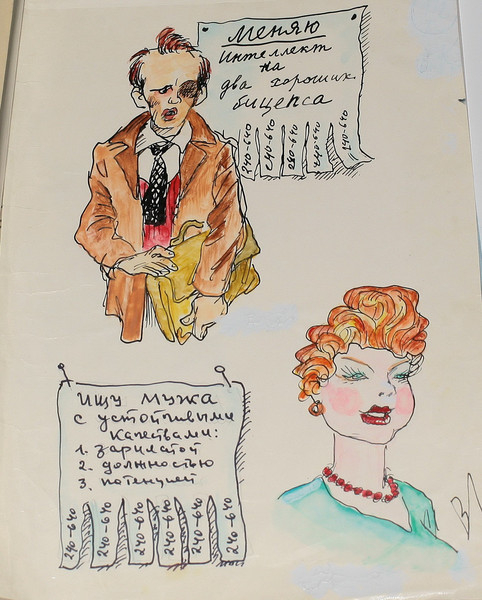 Меняю
Интеллект
на
два хороших
бицепса
240-640
240-640
240-640
240-640
240-640
ищу мужа
с устойчивыми
качествами:
1. зарплатой
2. должностью
3. потенцией
240-640
240-640
240-640
240-640
240-640
240-640